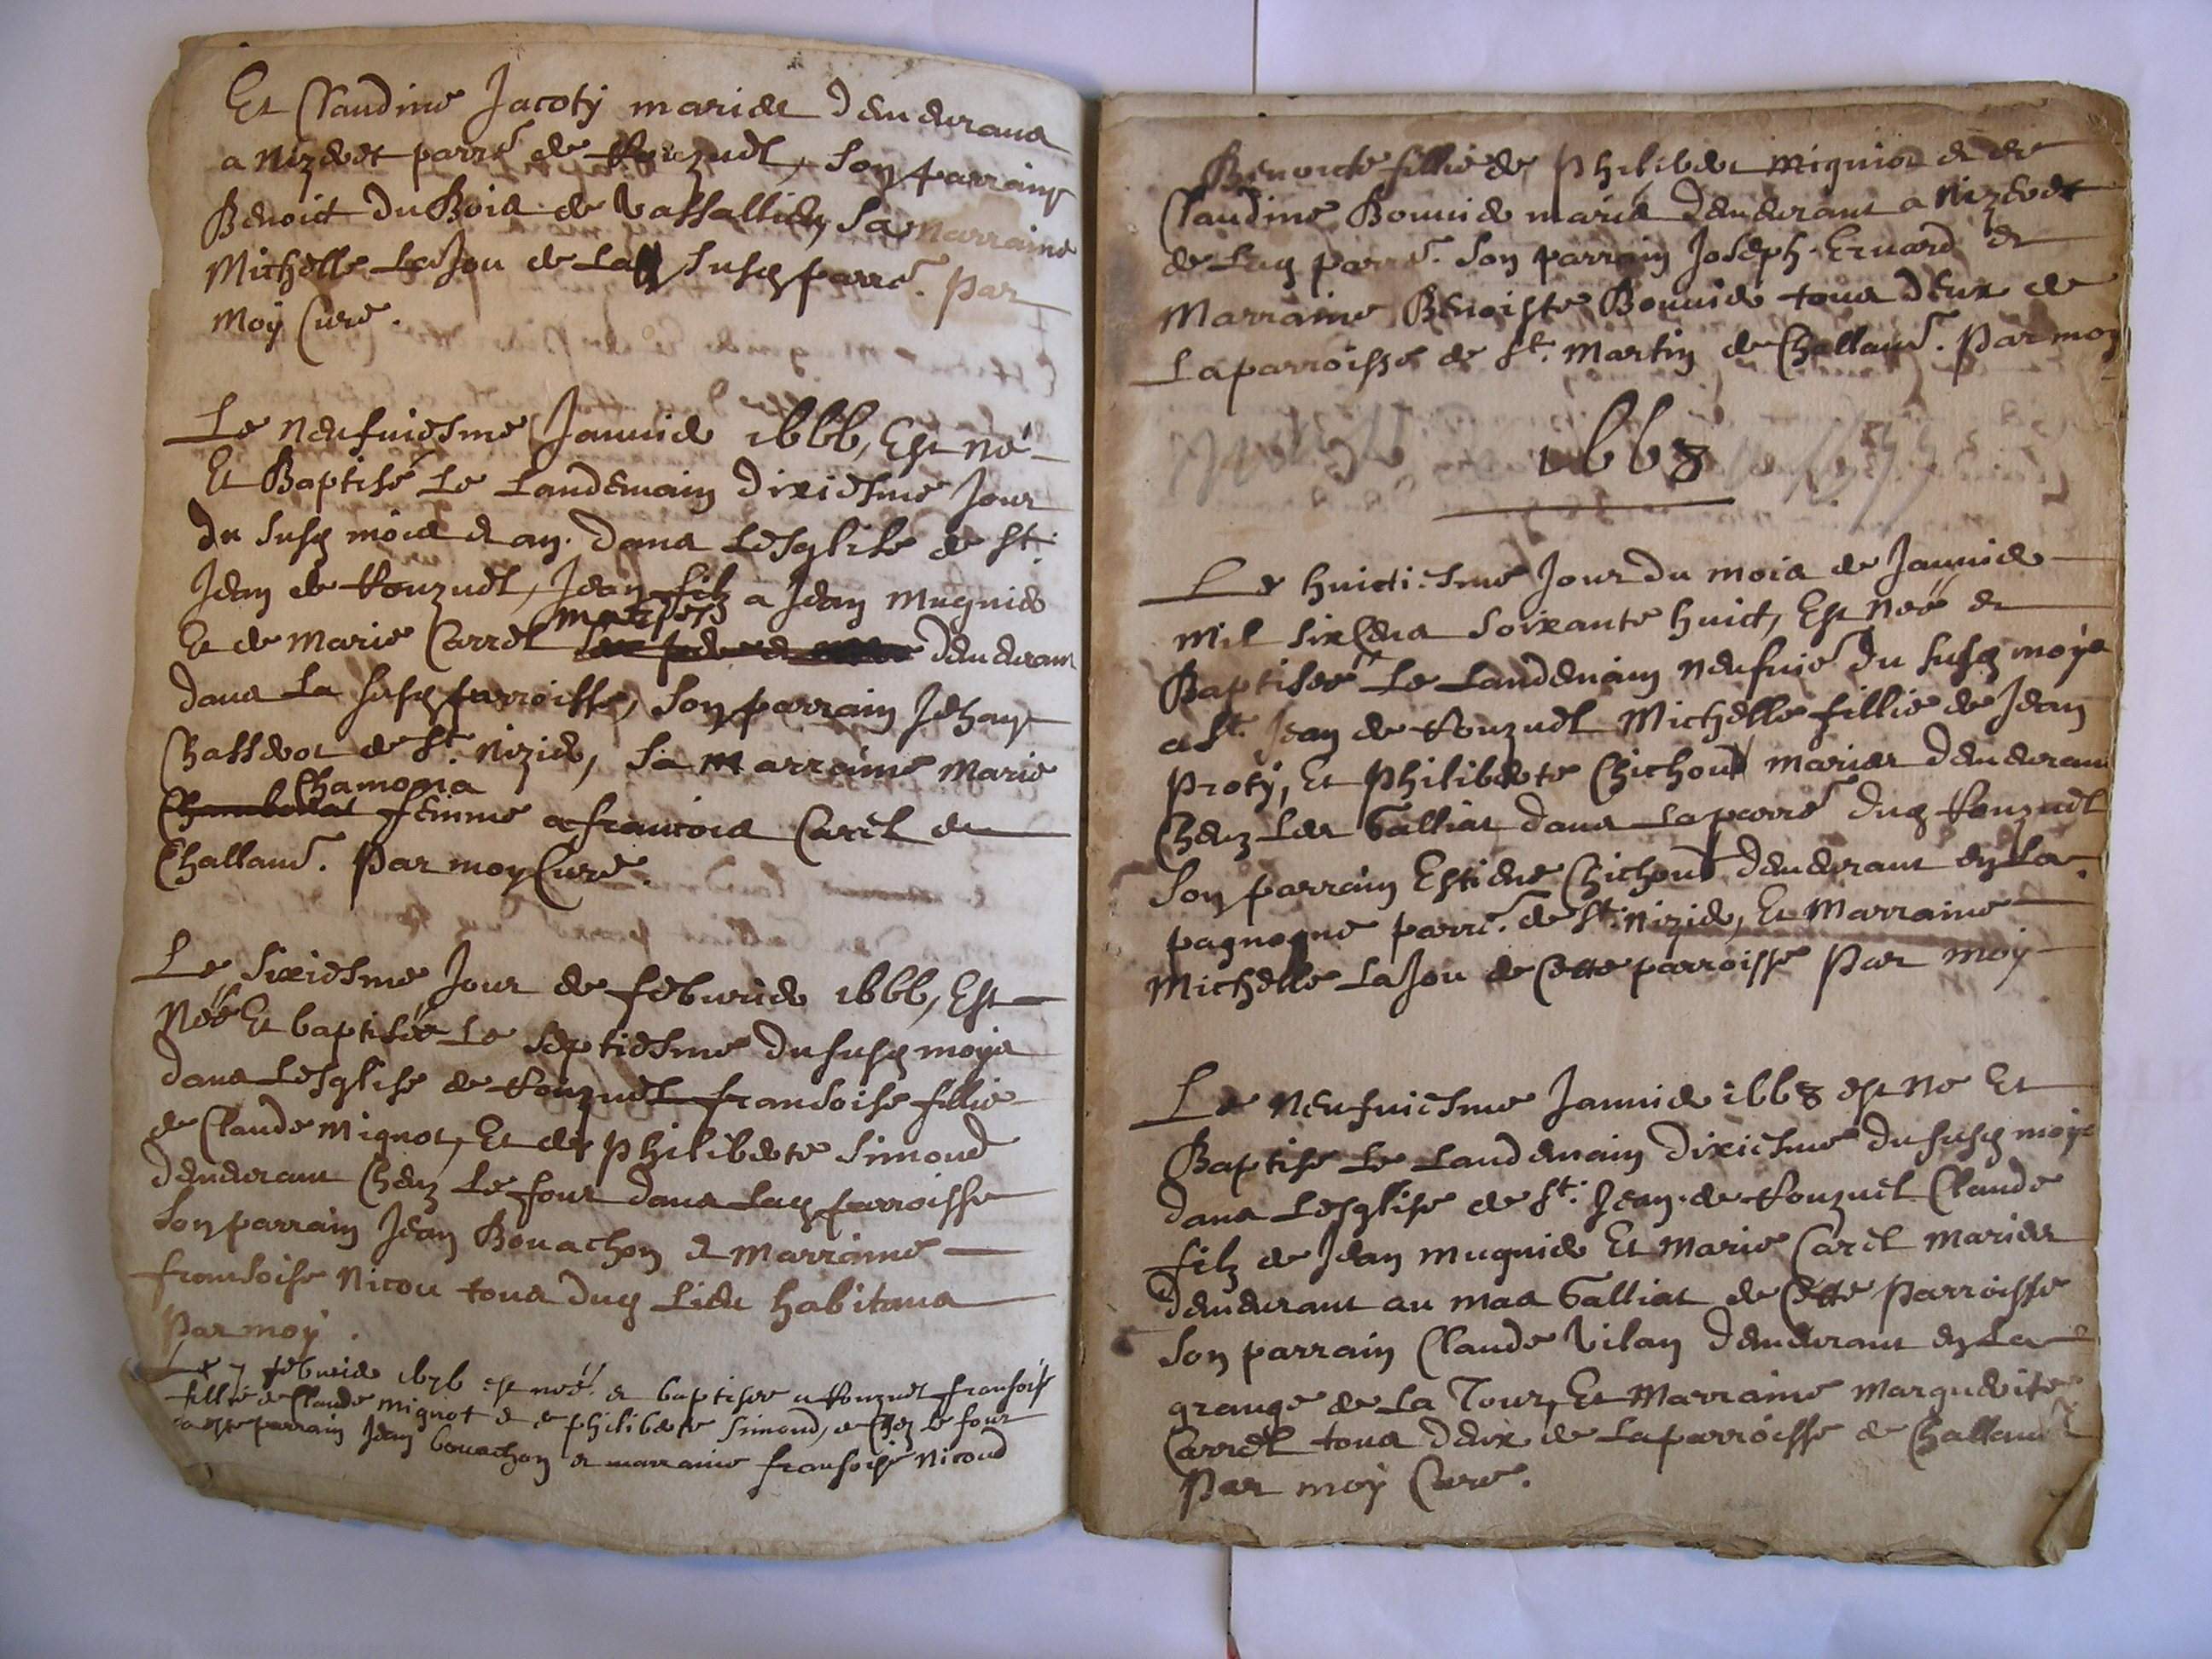 Et Claudine Jacoty mariés demeurans
a Nizeret parre de Rouzuel, son parraing
Benoict Du Bois de Vassallieu, sa marraine
Michelle Lajou de La susq parre. Par
Moy Curé.
Le neufuiesme Januier 1666, Est né
Et Baptisé Le Landemain dixiesme Jour
du susq mois et an. dans Lesglise de St.
Jean de Rouzuel, Jean filz a Jean Mugnier
Et de Marie Carrel mariés demeurans
dans La susq parroisse, son parrain Jehan
Chasserot de St. Nizier, sa marraine Marie
Chamona
femme a francois Carel de
Challand. Par moy Curé.
Le sixiesme Jour de feburier 1666, Est
Néé Et baptiséé Le septiesme du susq moys
dans Lesglise de Rouzuel fransoise fillie
de Claude Mignot, Et de Philiberte Simond
demeurant Chez Le four dans Laq parroisse
son parrain Jean Bouachon et Marraine
fransoise Nicou tous duq Lieu habitans
Par moy.
Le 7 februier 1676 est néé et baptisee a Rouzuel fransoise
fillie de Claude Mignot et de philiberte Simond, de Chez Le four
parrain Jean bouachon et marraine fransoise Nicoud
Benoicte fillie de Philibert Migniot et de
Claudine Bouuier mariés demeurant a Nizeret
de Laq parre. Son parrain Joseph Eruard et
Marraine Benoiste Bouuier tous deux de
La parroisse de St. Martin de Challand. Par moy
1668
Le huictiesme Jour du mois de Januier
Mil six Cens soixante huict, Est Néé et
Baptiséé Le Landemain neufuie du susq moys
a St. Jean de Rouzuel Michelle fillie de Jean
Proty, Et Philiberte Chichoud mariés demeurans
Chez Les Galliat dans La parre duq Rouzuel
Son parrain Estiene Chichoud demeurant en La
pagnogne parre. de St. Nizier, Et Marraine
Michelle Lajou de Cette parroisse Par moy
Le Neufuiesme Januier 1668 est Né Et
Baptisé Le Landemain dixiesme du susq moys
dans Lesglise de St. Jean de Rouzuel Claude
filz de Jean Mugnier Et Marie Carel Mariés
demeurant au mas Galliat de Cette Parroisse
son parrain Claude Vilan demeurant en La
grange de La Tour, Et Marraine Marguerite
Carrel tous deux de La parroisse de Challand
Par moy Curé.